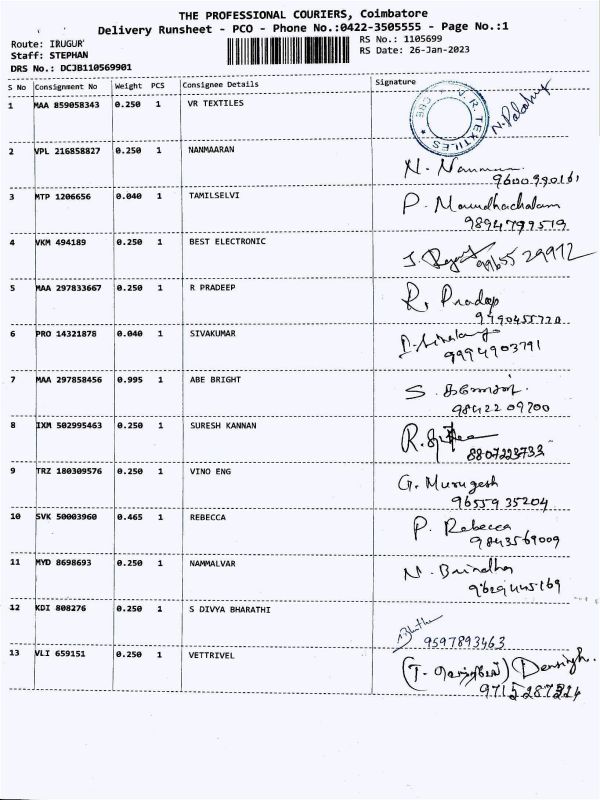 THE PROFESSIONAL COURIERS, Coimbatore
Delivery Runsheet - PCO - Phone No.:0422-3505555 - Page No.:1
Route: IRUGUR
RS No.: 1105699
Staff: STEPHAN
RS Date: 26-Jan-2023
DRS No.: DCJB110569901
S No Consignment No Weight PCS Consignee Details Signature
1 MAA 859058343 0.250 1 VR TEXTILES
V.R. TEXTILES * CBE *
2 VPL 216858827 0.250 1 NANMAARAN
N.
9600990161
3 MTP 1206656 0.040 1 TAMILSELVI P. Marudhachalam
9894799519
4 VKM 494189 0.250 1 BEST ELECTRONIC
9965529972
5 MAA 297833667 0.250 1 R PRADEEP R. Pradeep
9790455720
6 PRO 14321878 0.040 1 SIVAKUMAR
9994903791
7 MAA 297858456 0.995 1 ABE BRIGHT S.
9842209700
8 IXM 502995463 0.250 1 SURESH KANNAN
8807223733
9 TRZ 180309576 0.250 1 VINO ENG G. Murugesh
9655935204
10 SVK 50003960 0.465 1 REBECCA P. Rebecca
9843569009
11 MYD 8698693 0.250 1 NAMMALVAR N. Brindha
9629445169
12 KDI 808276 0.250 1 S DIVYA BHARATHI
9597893463
13 VLI 659151 0.250 1 VETTRIVEL